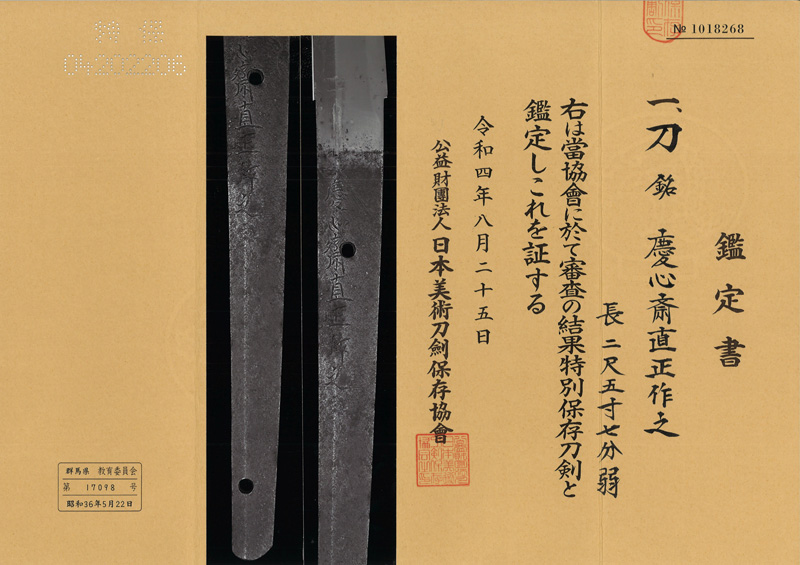 № 1018268
鑑定書
一、刀 銘 慶心斎直正作之
長二尺五寸七分弱
右は當協會に於て審査の結果特別保存刀剣と
鑑定しこれを証する
令和四年八月二十五日
公益財團法人日本美術刀劍保存協會
群馬県 教育委員会
第 17098 号
昭和36年5月22日